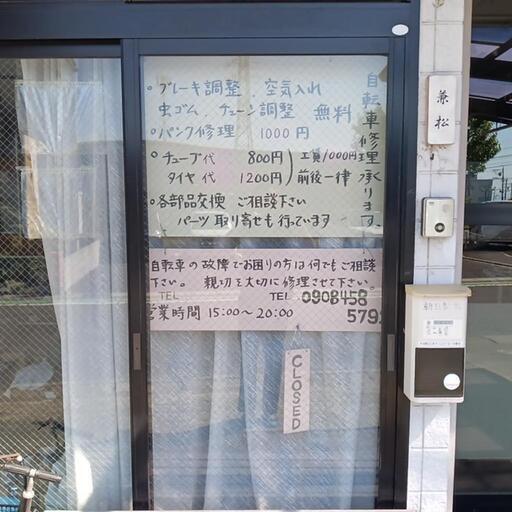 自転車修理承ります
○ブレーキ調整、空気入れ
虫ゴム、チェーン調整 無料
○パンク修理 1000円
○チューブ代 800円
タイヤ代 1200円
工賃1000円
前後一律
○各部品交換 ご相談下さい
パーツ取り寄せも行っています
自転車の故障でお困りの方は何でもご相談
下さい。親切を大切に修理させて下さい。
TEL TEL 0908458
579
営業時間 15:00~20:00
CLOSED
兼松